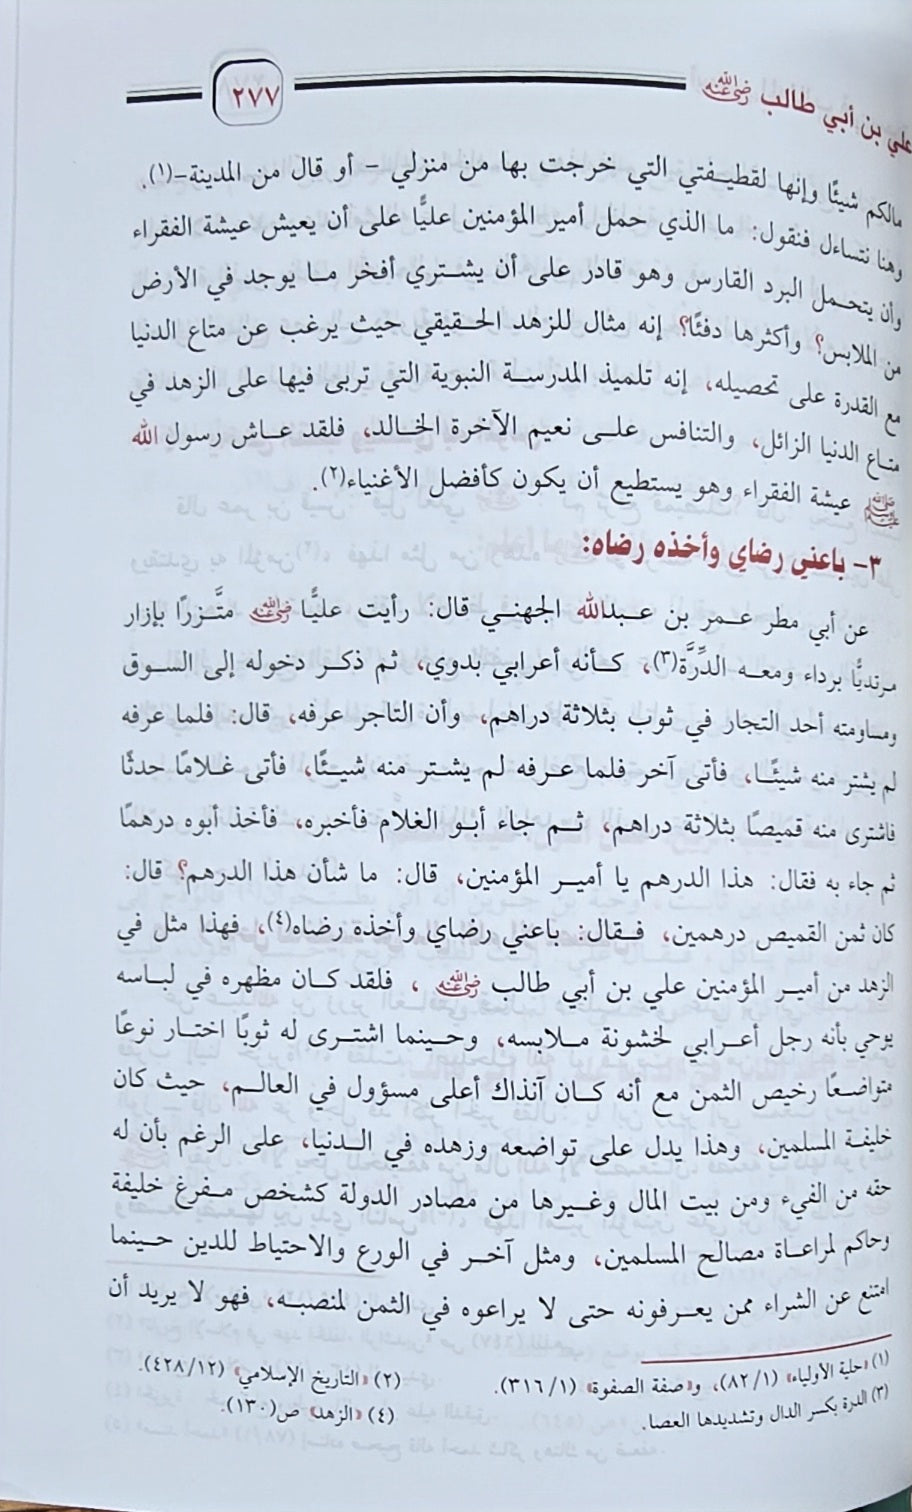 علي بن أبي طالب رضي الله عنه
٢٧٧
مالكم شيئًا وإنها لقطيفتي التي خرجت بها من منزلي - أو قال من المدينة-(١).
وهنا نتساءل فنقول: ما الذي حمل أمير المؤمنين عليًّا على أن يعيش عيشة الفقراء
وأن يتحمل البرد القارس وهو قادر على أن يشتري أفخر ما يوجد في الأرض
من الملابس؟ وأكثرها دفئًا؟ إنه مثال للزهد الحقيقي حيث يرغب عن متاع الدنيا
مع القدرة على تحصيله، إنه تلميذ المدرسة النبوية التي تربى فيها على الزهد في
متاع الدنيا الزائل، والتنافس على نعيم الآخرة الخالد، فلقد عاش رسول الله
ﷺ عيشة الفقراء وهو يستطيع أن يكون كأفضل الأغنياء(٢).
٣- باعني رضاي وأخذه رضاه:
عن أبي مطر عمر بن عبدالله الجهني قال: رأيت عليًّا رضي الله عنه متَّزرًا بإزار
مرتديًّا برداء ومعه الدِّرَّة(٣)، كأنه أعرابي بدوي، ثم ذكر دخوله إلى السوق
ومساومته أحد التجار في ثوب بثلاثة دراهم، وأن التاجر عرفه، قال: فلما عرفه
لم يشتر منه شيئًا، فأتى آخر فلما عرفه لم يشتر منه شيئًا، فأتى غلامًا حدثًا
فاشترى منه قميصًا بثلاثة دراهم، ثم جاء أبو الغلام فأخبره، فأخذ أبوه درهمًا
ثم جاء به فقال: هذا الدرهم يا أمير المؤمنين، قال: ما شأن هذا الدرهم؟ قال:
كان ثمن القميص درهمين، فقال: باعني رضاي وأخذه رضاه(٤)، فهذا مثل في
الزهد من أمير المؤمنين علي بن أبي طالب رضي الله عنه، فلقد كان مظهره في لباسه
يوحي بأنه رجل أعرابي لخشونة ملابسه، وحينما اشترى له ثوبًا اختار نوعًا
متواضعًا رخيص الثمن مع أنه كان آنذاك أعلى مسؤول في العالم، حيث كان
خليفة المسلمين، وهذا يدل على تواضعه وزهده في الدنيا، على الرغم بأن له
حقه من الفيء ومن بيت المال وغيرها من مصادر الدولة كشخص مفرغ خليفة
وحاكم لمراعاة مصالح المسلمين، ومثل آخر في الورع والاحتياط للدين حينما
امتنع عن الشراء ممن يعرفونه حتى لا يراعوه في الثمن لمنصبه، فهو لا يريد أن
(١) «حلية الأولياء» (٨٢/١)، و«صفة الصفوة» (٣١٦/١).
(٢) «التاريخ الإسلامي» (٤٢٨/١٢).
(٣) الدرة بكسر الدال وتشديدها العصا.
(٤) «الزهد» ص(١٣٠).